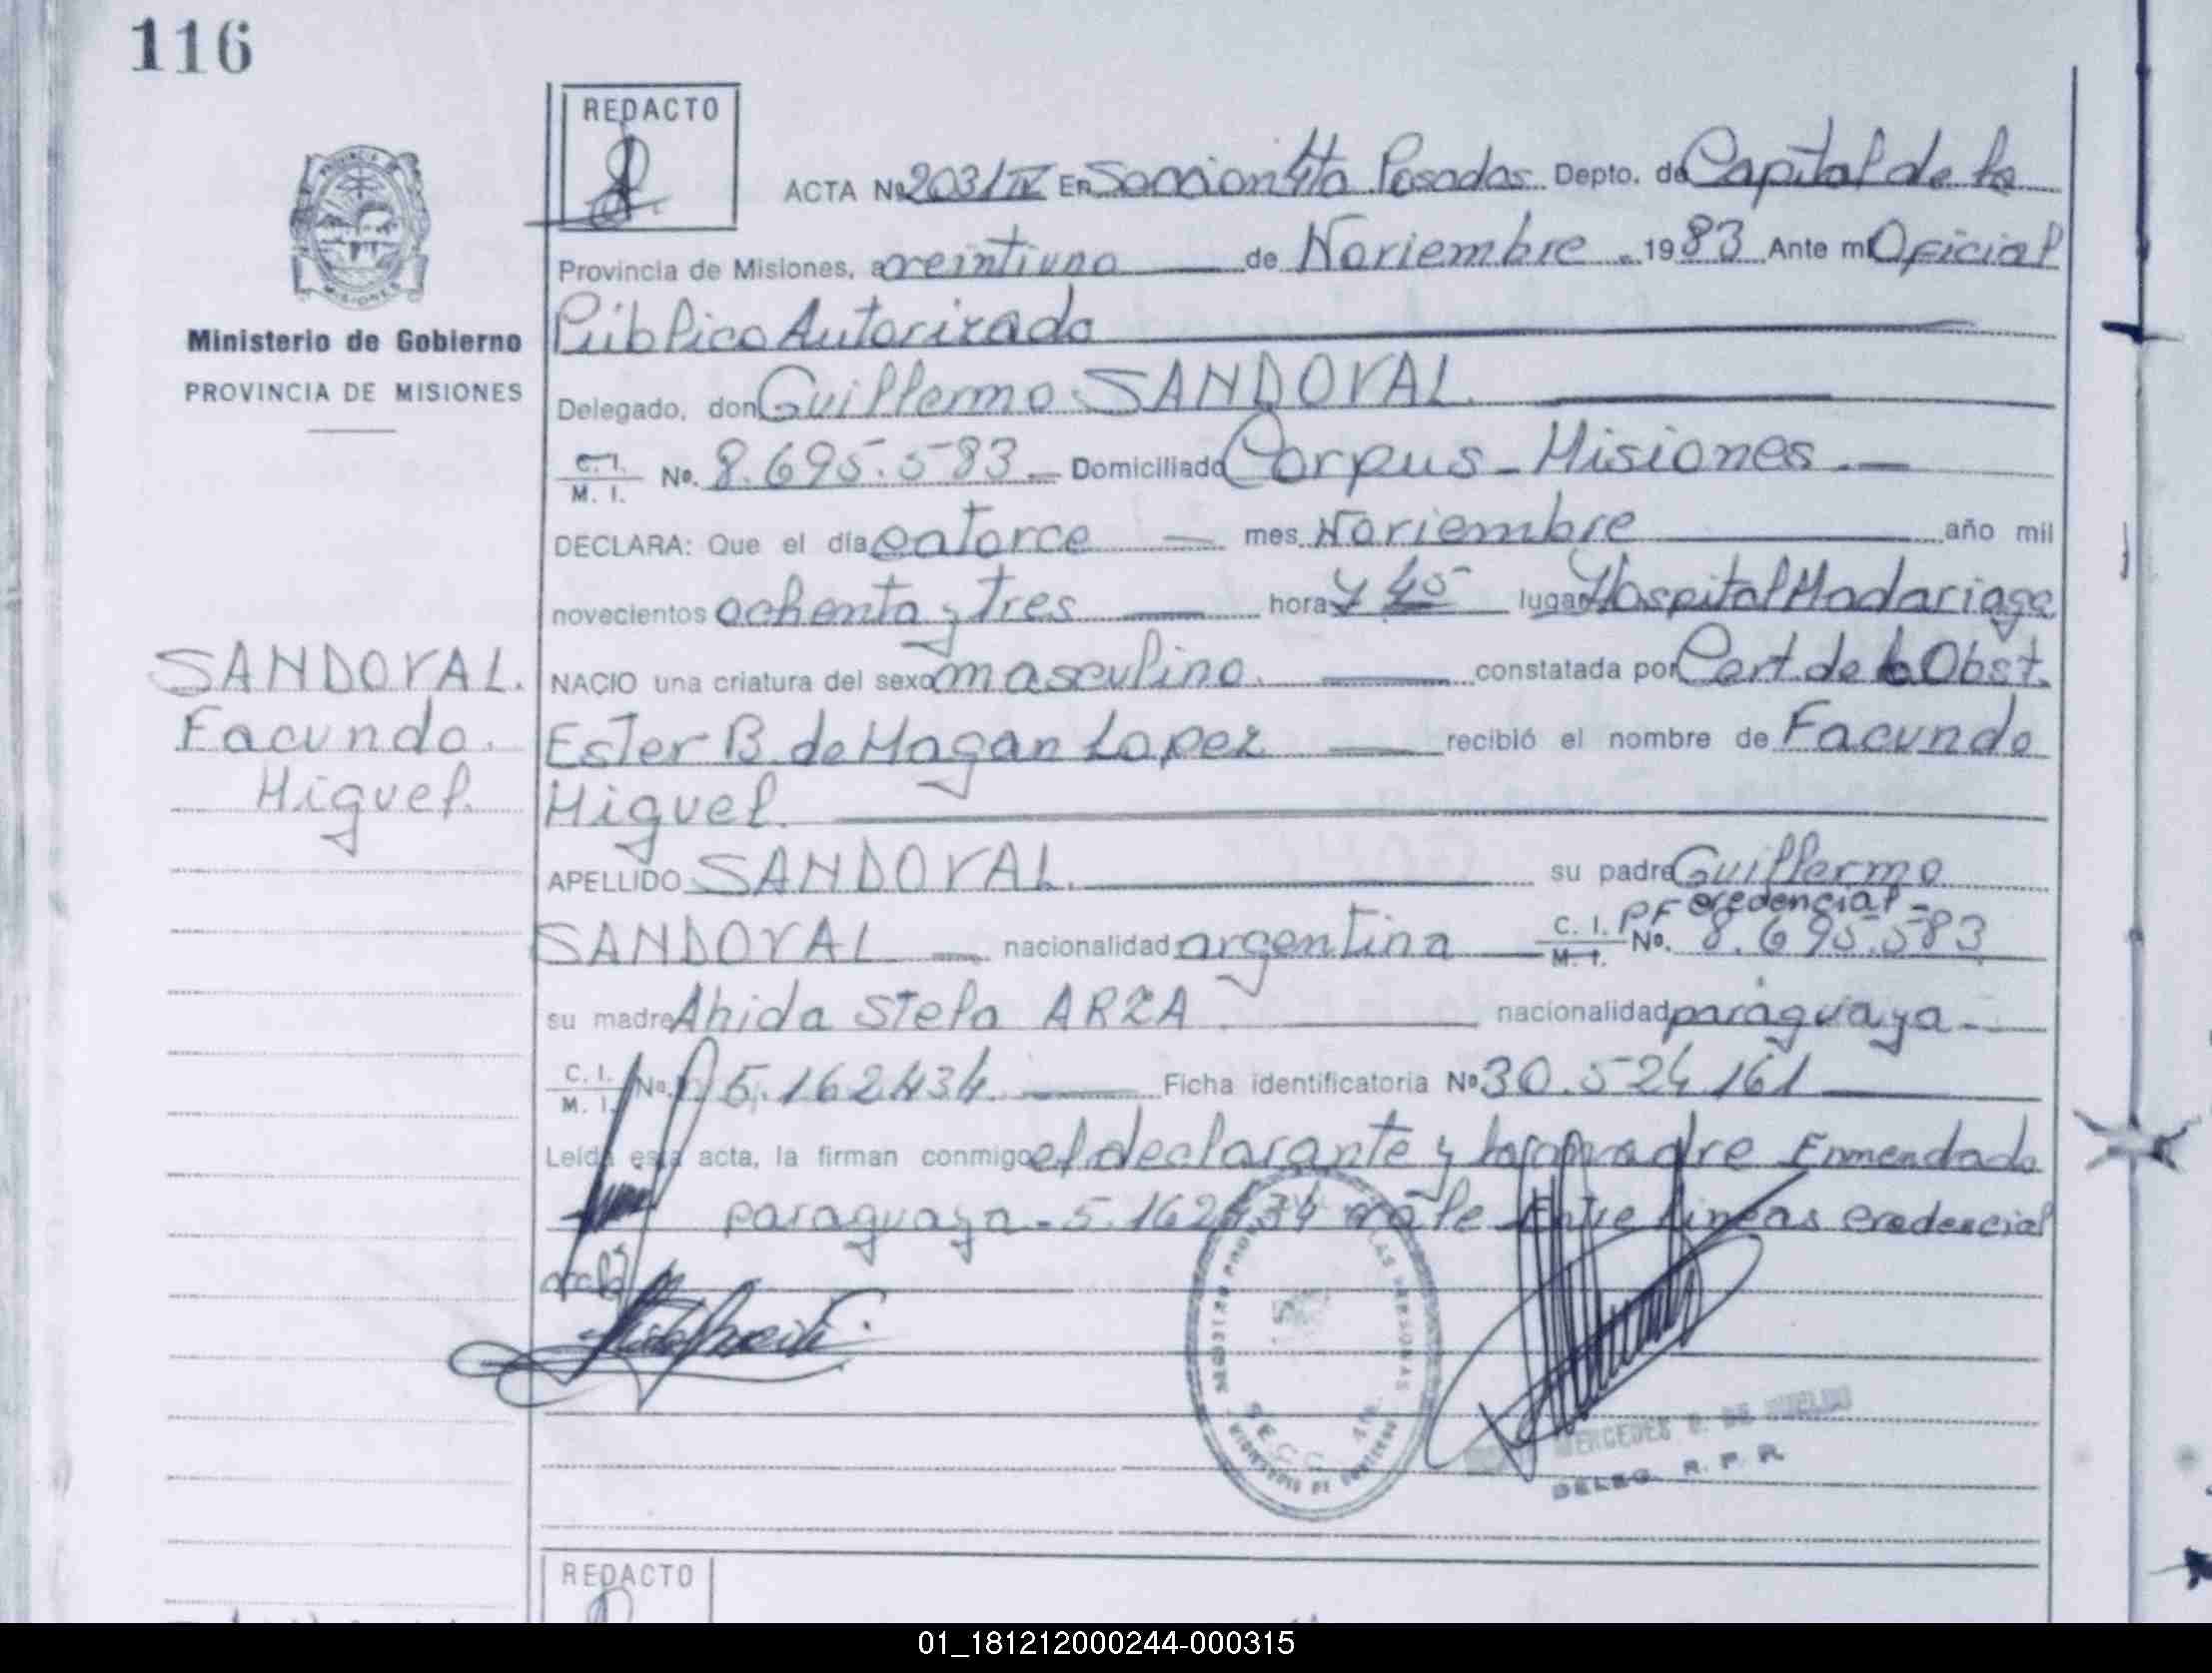 116
REDACTO
ACTA Nº 203/IV En Seccion 4ta Posadas Depto. de Capital de la
Provincia de Misiones, a veintiuno de Noviembre 1983 Ante mi Oficial
Público Autorizado
Ministerio de Gobierno
PROVINCIA DE MISIONES
Delegado, don Guillermo SANDOVAL.
C. I. M. I. Nº. 8.695.583 Domiciliado Corpus - Misiones.
DECLARA: Que el día catorce mes Noviembre año mil
novecientos ochenta y tres hora lugar Hospital Madariaga
NACIO una criatura del sexo masculino. constatada por Cert. de la Obst.
Ester B. de Magan Lopez recibió el nombre de Facundo
Miguel.
SANDOVAL.
Facundo.
Miguel.
APELLIDO SANDOVAL. su padre Guillermo
credencial
SANDOVAL nacionalidad argentina C. I. M. I. PF Nº. 8.695.583
su madre Ahida Stela ARZA nacionalidad paraguaya
C. I. M. I. Nº. 5.162434. Ficha identificatoria Nº 30.524.161
Leída esta acta, la firman conmigo el declarante y la madre Enmendado
paraguaya - 5.162434 vale Entre lineas credencial
vale
SECC. 4TA.
MINISTERIO DE GOBIERNO
MERCEDES DE
DELEG. R. P. P.
REDACTO
01_181212000244-000315